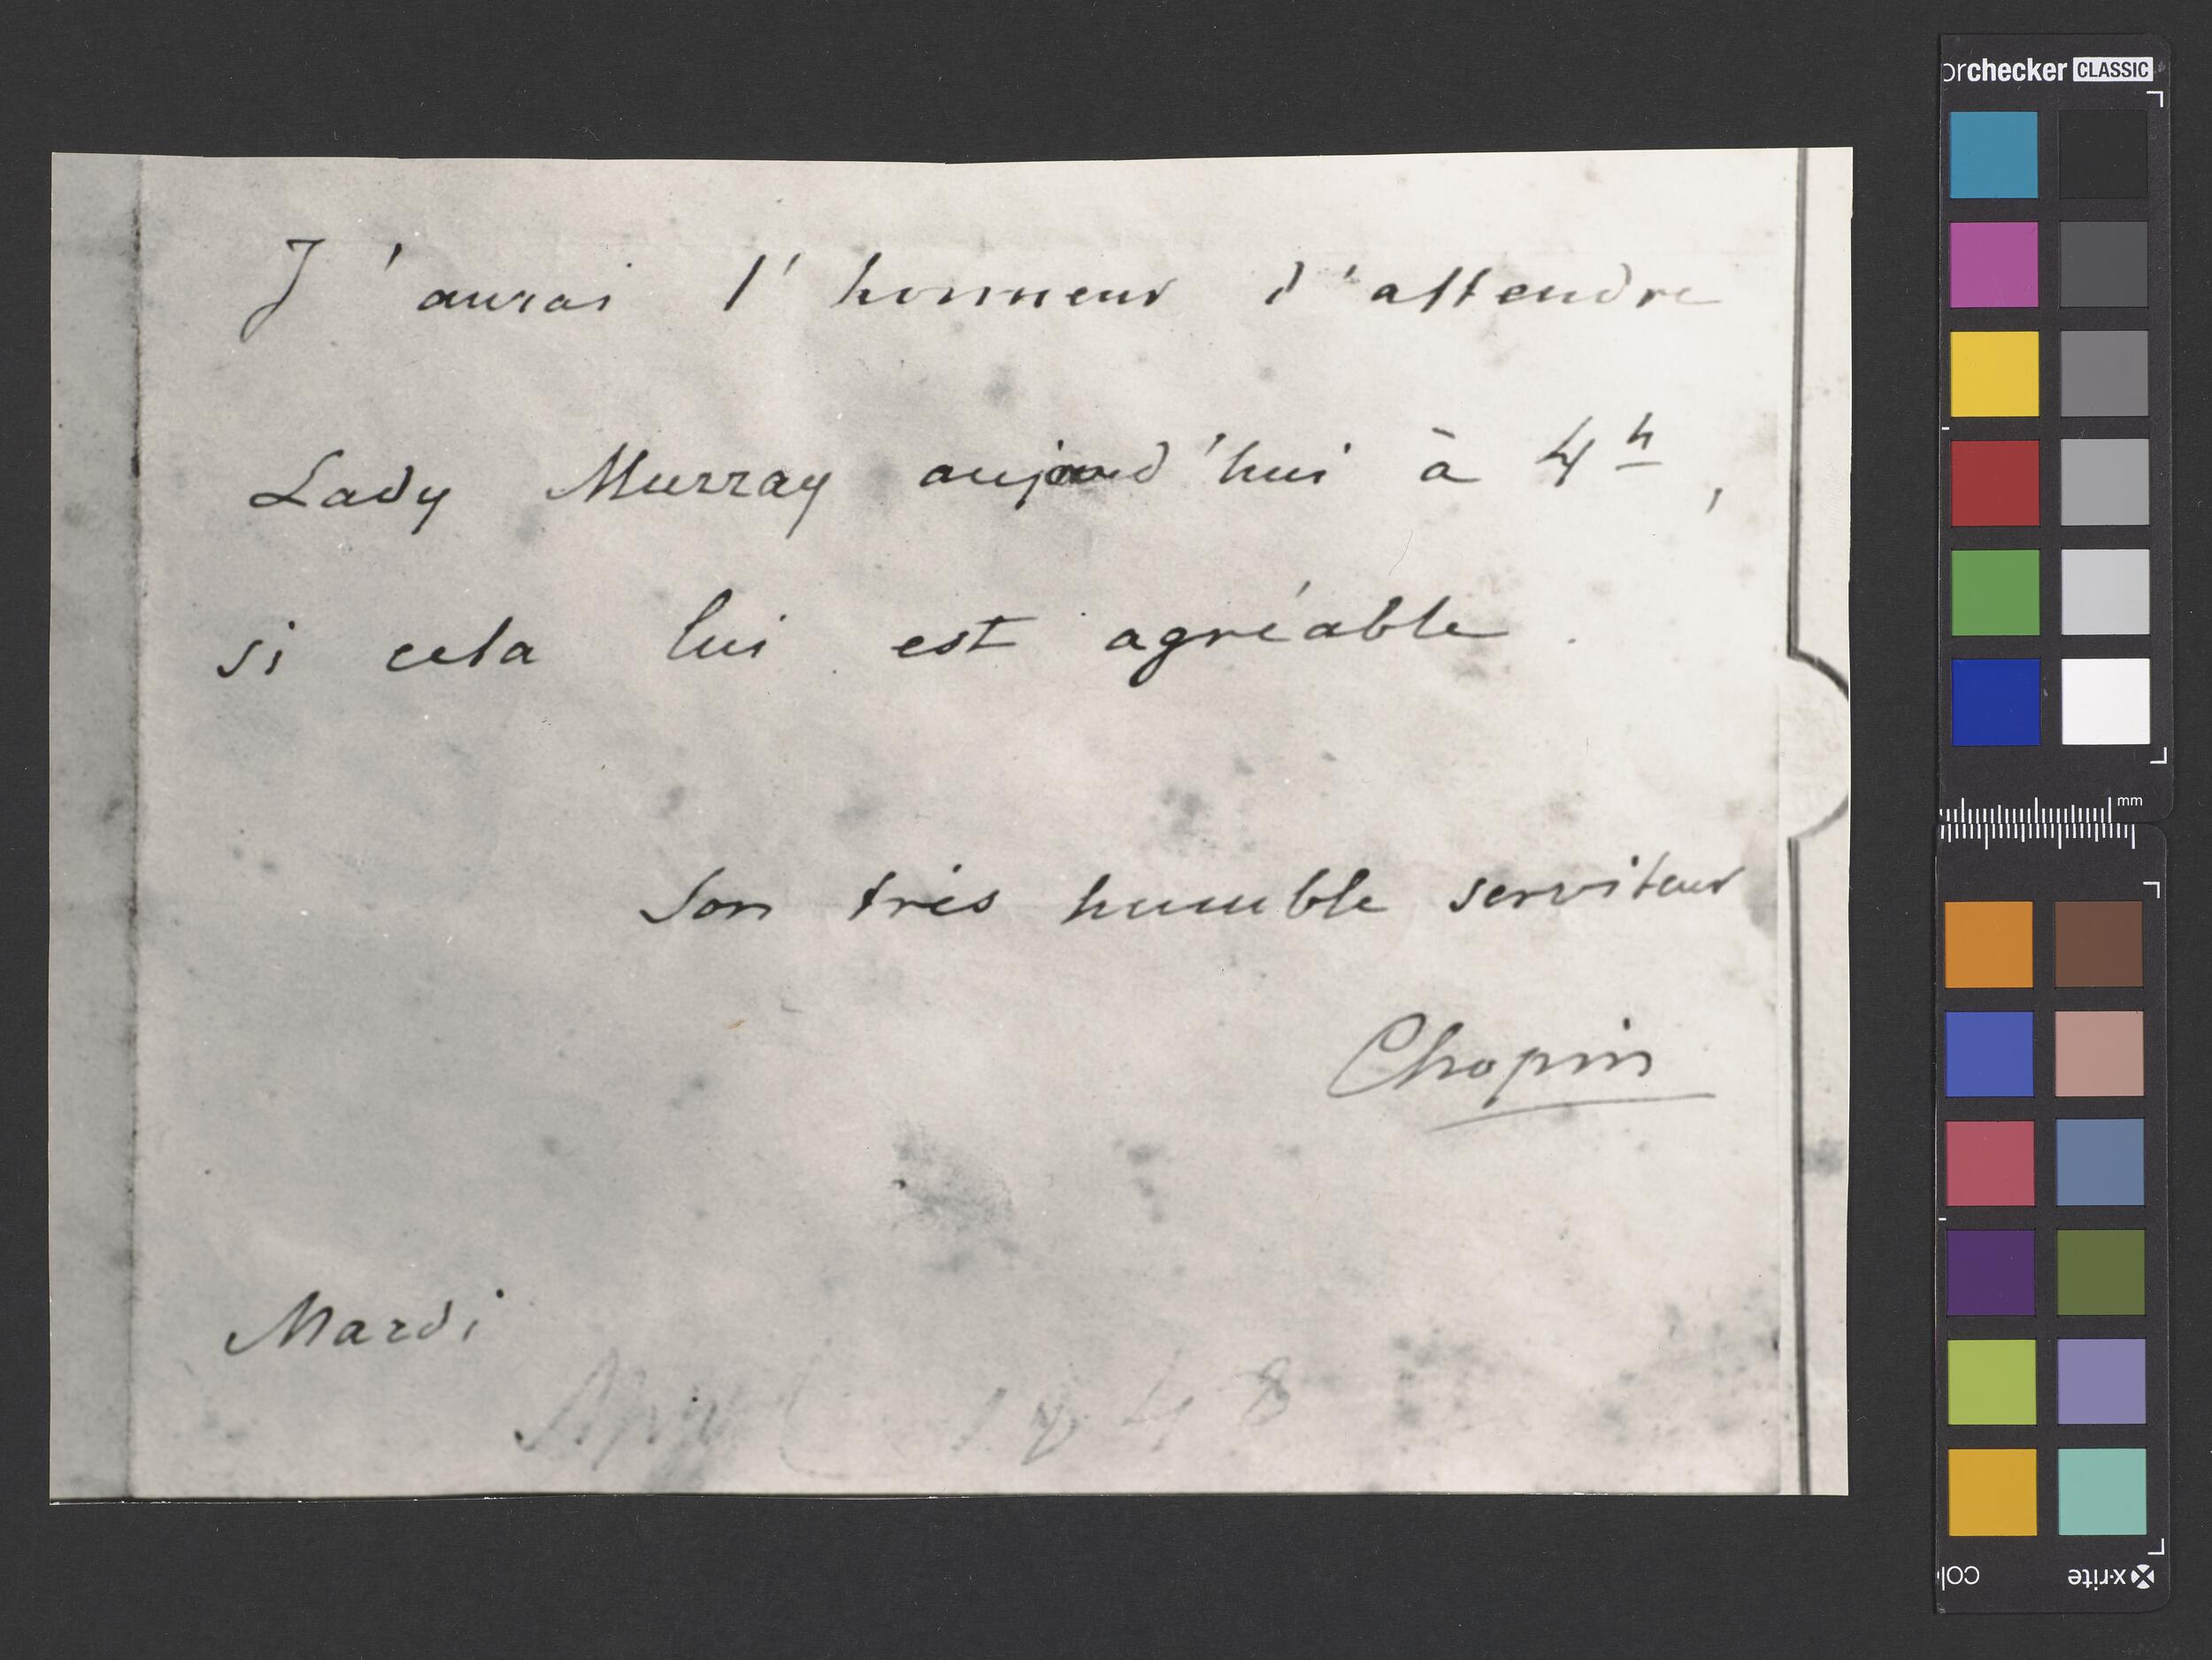 J'aurai l'honneur d'attendre
Lady Murray aujourd'hui à 4h,
si cela lui est agréable.
Son très humble serviteur
Chopin
Mardi
1848
orchecker CLASSIC
mm
x-rite
colo